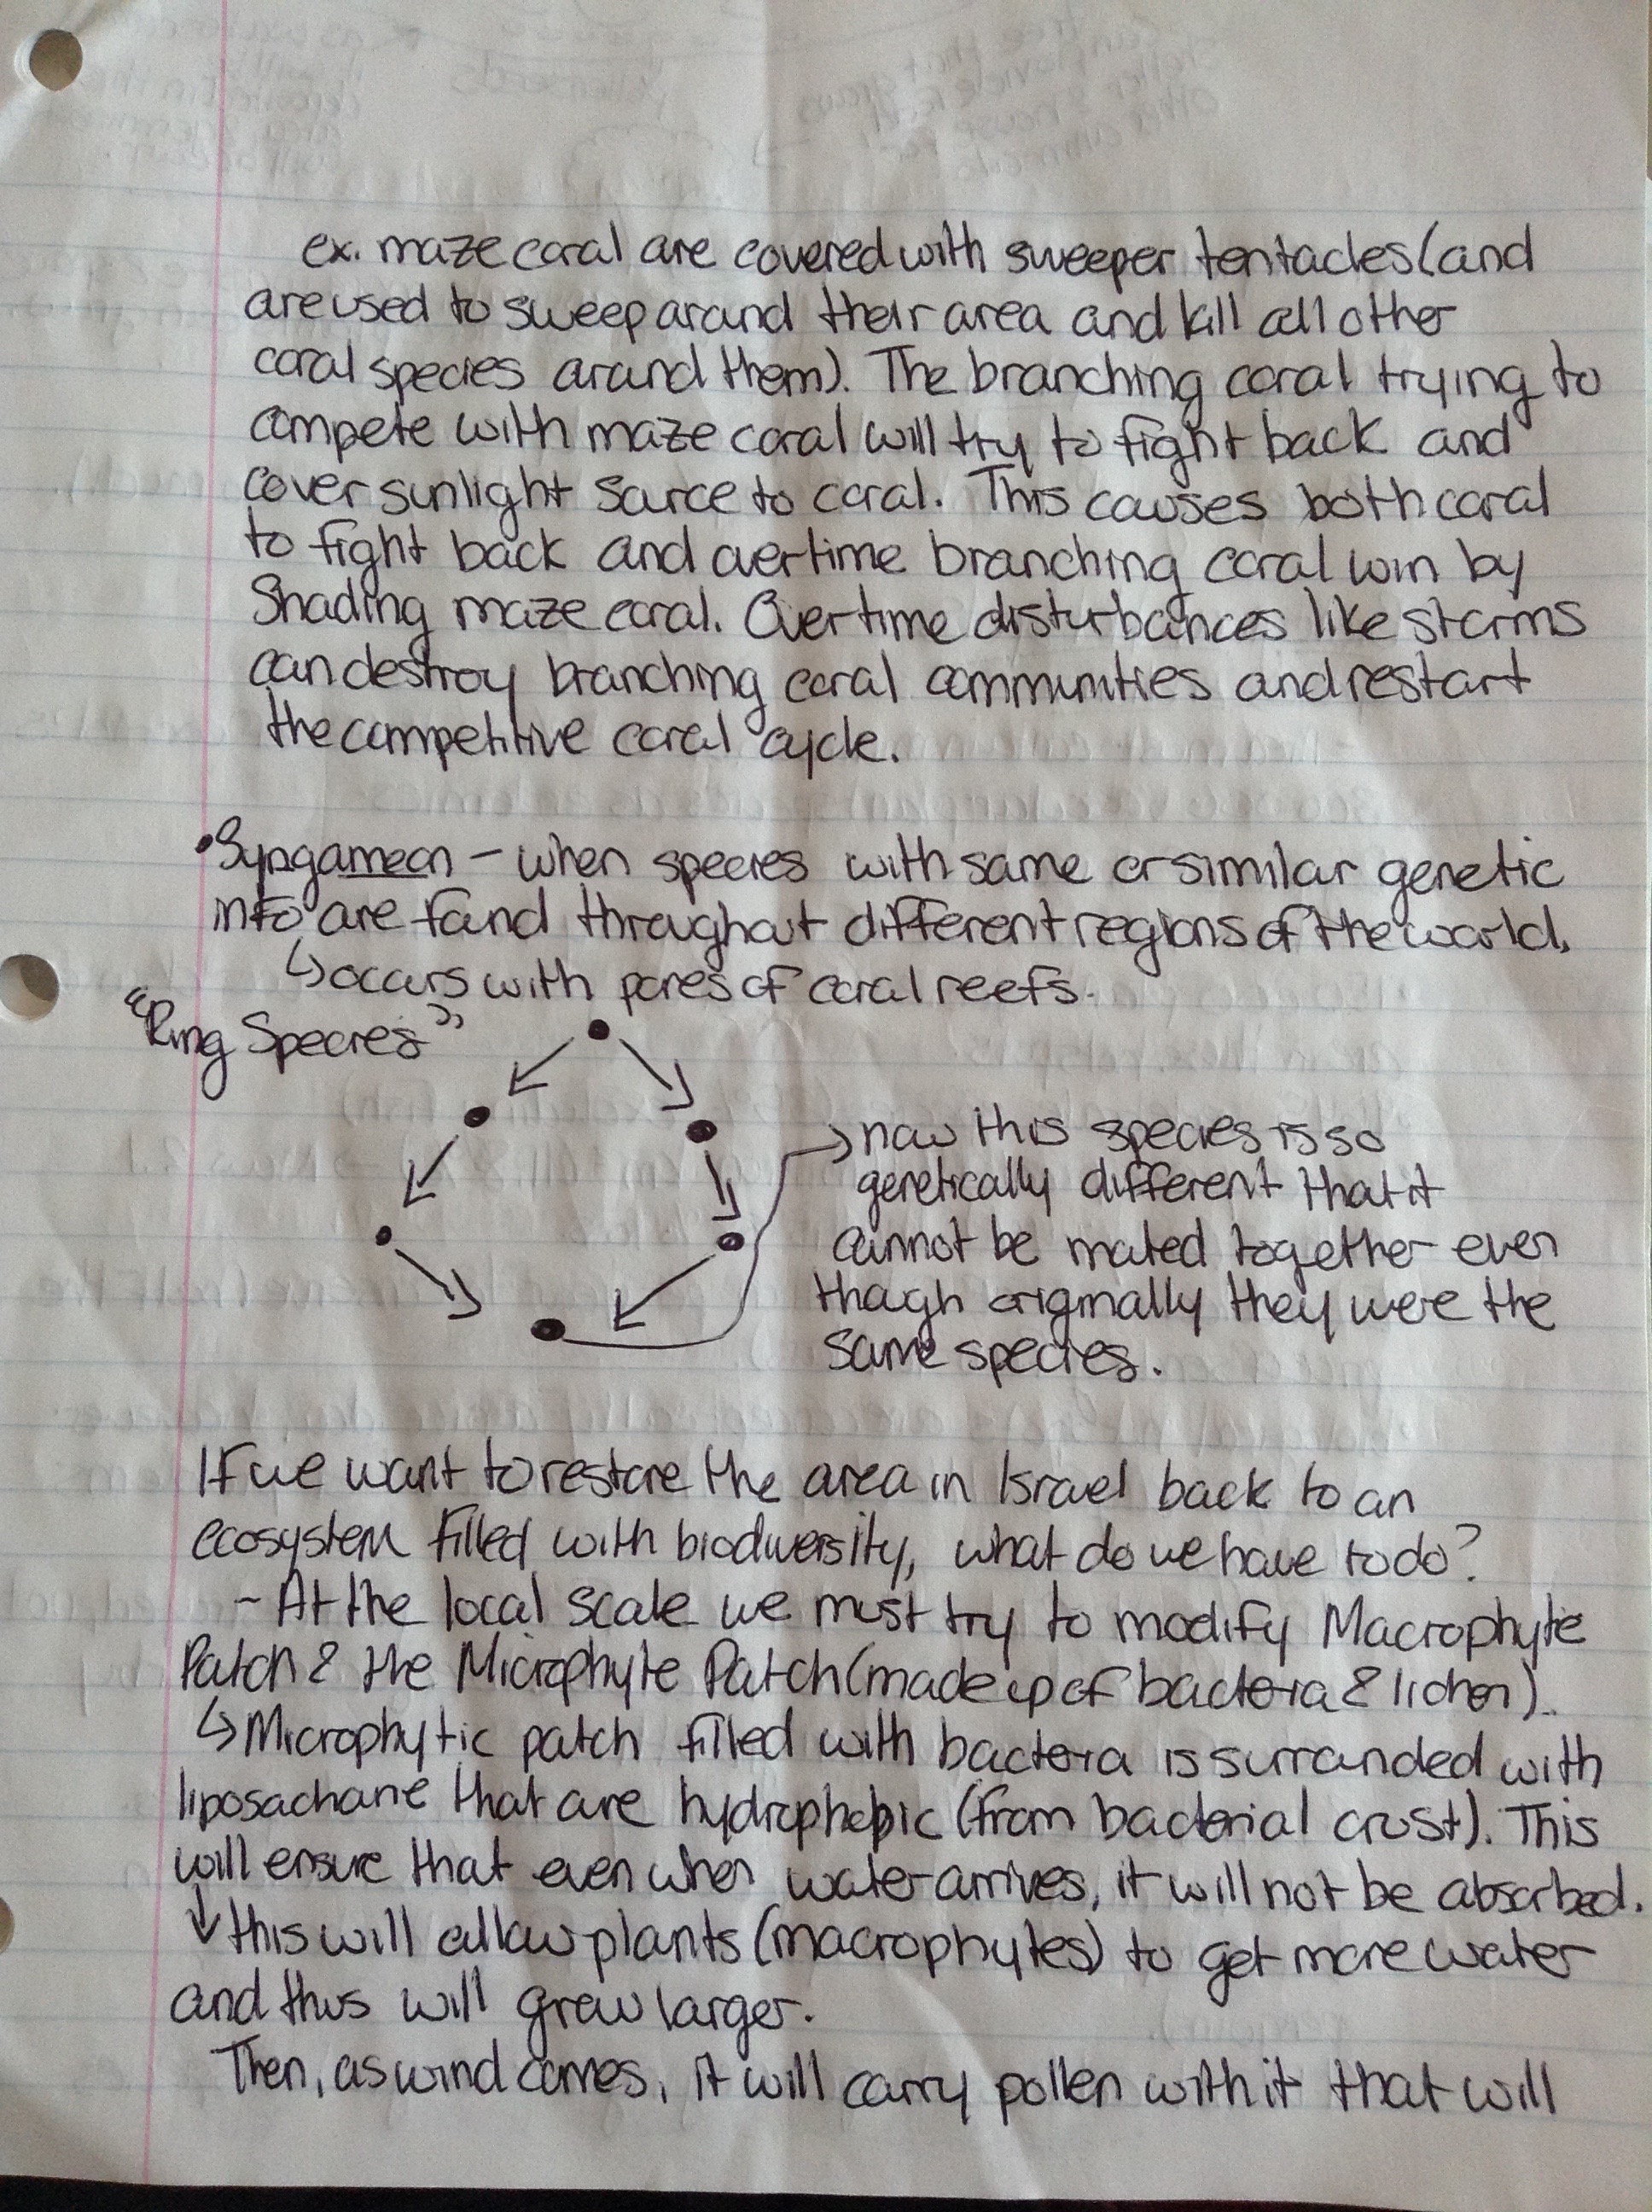 ex. maze coral are covered with sweeper tentacles (and
are used to sweep around their area and kill all other
coral species around them). The branching coral trying to
compete with maze coral will try to fight back and
cover sunlight source to coral. This causes both coral
to fight back and overtime branching coral win by
Shading maze coral. Overtime disturbances like storms
can destroy branching coral communities and restart
the competitive coral cycle.
• Syngameon - when species with same or similar genetic
info are found throughout different regions of the world.
↳ occurs with pores of coral reefs.
"Ring Species"
→ now this species is so
genetically different that it
cannot be mated together even
though originally they were the
same species.
If we want to restore the area in Israel back to an
ecosystem filled with biodiversity, what do we have to do?
- At the local scale we must try to modify Macrophyte
Patch & the Microphyte Patch (made up of bacteria & lichen).
↳ Microphytic patch filled with bacteria is surrounded with
liposacharie that are hydrophobic (from bacterial crust). This
will ensure that even when water arrives, it will not be absorbed.
↓ this will allow plants (macrophytes) to get more water
and thus will grow larger.
Then, as wind comes, it will carry pollen with it that will